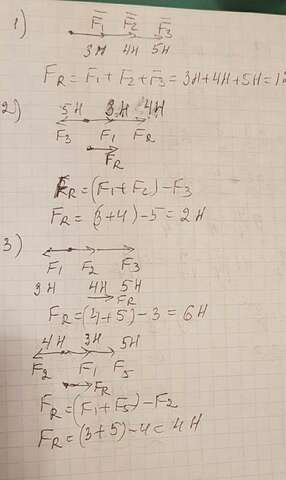 1) F̅₁ F̅₂ F̅₃
3H 4H 5H
F_R = F̅₁ + F̅₂ + F̅₃ = 3H+4H+5H=12
2) 5H 3H 4H
F₃ F₁ F_R
F_R
F_R = (F₁+F₂) – F₃
F_R = (3+4)–5 = 2H
3)
F₁ F₂ F₃
3H 4H 5H
F_R
F_R = (4+5) – 3 = 6H
4H 3H 5H
F₂ F₁ F₅
F_R
F_R = (F₁+F₅) – F₂
F_R = (3+5) – 4 = 4H